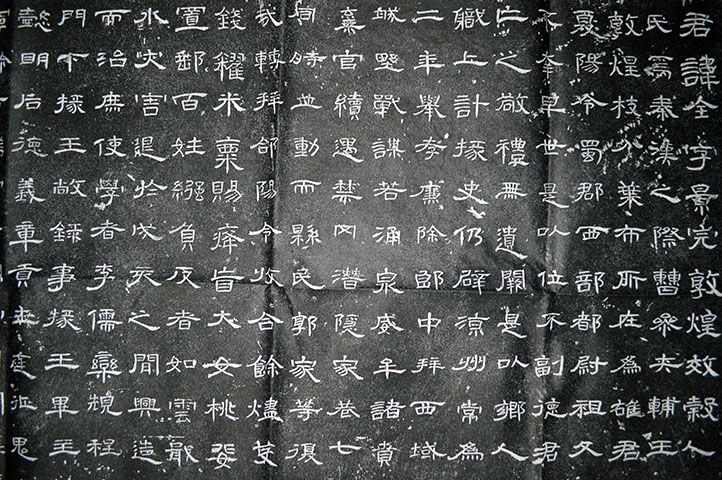 君諱全字景完敦煌效穀人
氏焉秦漢之際曹參夾輔王
敦煌枝分葉布所在為雄君
夏陽令蜀郡西部都尉祖父
不幸早世是以位不副德君
亡之敬禮無遺闕是以鄉人
職上計掾史仍辟涼州常為
二年舉孝廉除郎中拜西域
城野戰謀若涌泉威牟諸賁
棄官續遇禁网潛隱家巷七
同時並動而縣民郭家等復
哉轉拜郃陽令收合餘燼芟
錢糴米粟賜癃盲大女桃婓
置郵百姓繈負反者如雲戢
水灾害退於戌亥之間興造
而治庶使學者李儒欒規程
門下掾王敞錄事掾王畢主
懿明后德義章貢王庭征鬼